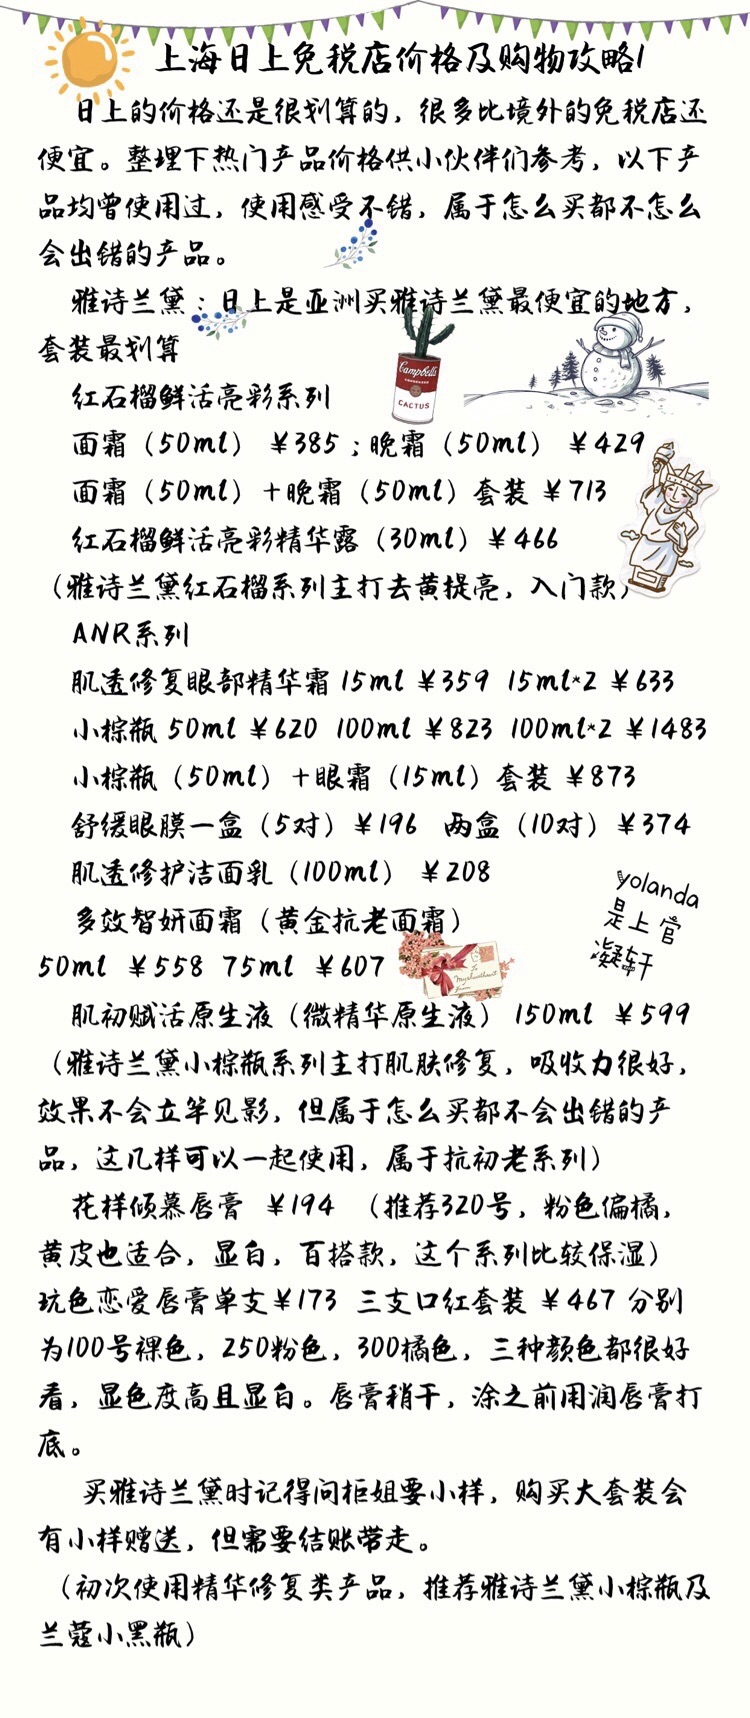 上海日上免税店价格及购物攻略1
日上的价格还是很划算的，很多比境外的免税店还
便宜。整理下热门产品价格供小伙伴们参考，以下产
品均曾使用过，使用感受不错，属于怎么买都不怎么
会出错的产品。
雅诗兰黛：日上是亚洲买雅诗兰黛最便宜的地方，
套装最划算
Campbell's
CACTUS
红石榴鲜活亮彩系列
面霜（50ml） ￥385；晚霜（50ml） ￥429
面霜（50ml）＋晚霜（50ml）套装 ￥713
红石榴鲜活亮彩精华露（30ml）￥466
（雅诗兰黛红石榴系列主打去黄提亮，入门款）
ANR系列
肌透修复眼部精华霜 15ml ￥359 15ml*2 ￥633
小棕瓶 50ml ￥620 100ml ￥823 100ml*2 ￥1483
小棕瓶（50ml）＋眼霜（15ml）套装 ￥873
舒缓眼膜一盒（5对）￥196 两盒（10对）￥374
肌透修护洁面乳（100ml） ￥208
多效智妍面霜（黄金抗老面霜）
yolanda
是上官
凝轩
50ml ￥558 75ml ￥607
肌初赋活原生液（微精华原生液） 150ml ￥599
（雅诗兰黛小棕瓶系列主打肌肤修复，吸收力很好，
效果不会立竿见影，但属于怎么买都不会出错的产
品，这几样可以一起使用，属于抗初老系列）
花样倾慕唇膏 ￥194 （推荐320号，粉色偏橘，
黄皮也适合，显白，百搭款，这个系列比较保湿）
玩色恋爱唇膏单支￥173 三支口红套装 ￥467 分别
为100号裸色，250粉色，300橘色，三种颜色都很好
看，显色度高且显白。唇膏稍干，涂之前用润唇膏打
底。
买雅诗兰黛时记得问柜姐要小样，购买大套装会
有小样赠送，但需要结账带走。
（初次使用精华修复类产品，推荐雅诗兰黛小棕瓶及
兰蔻小黑瓶）